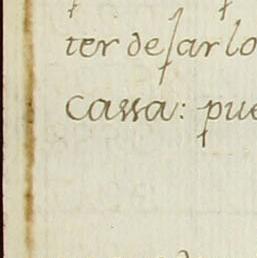 ter deſar lo
Cassa: pue